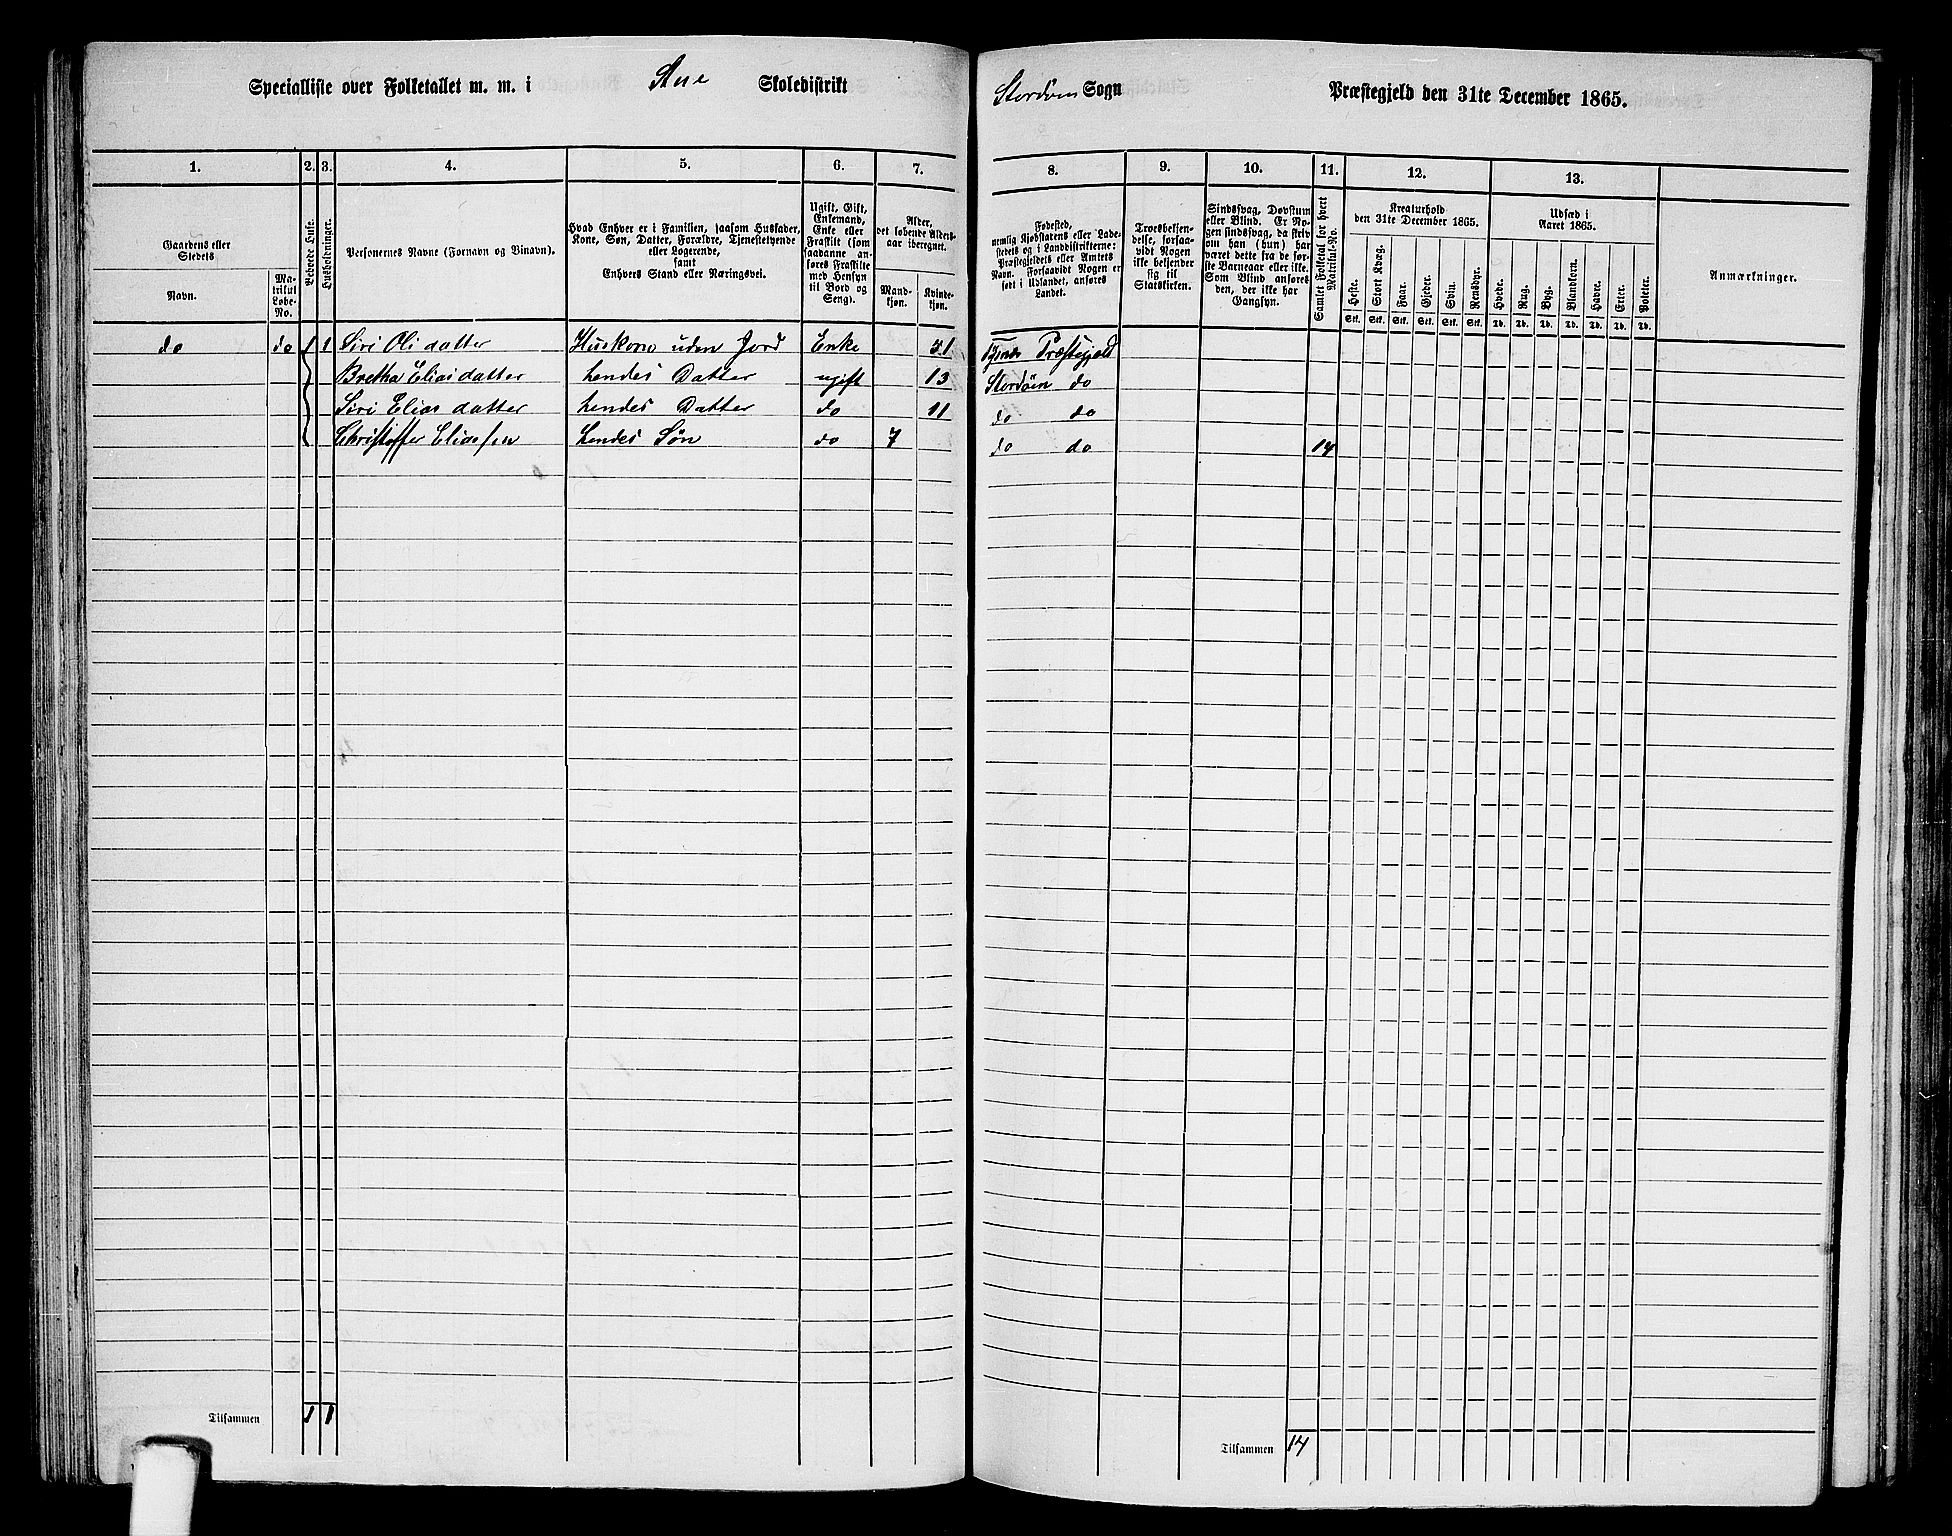 Specialliste over Folketallet m. m. i Aue Skoledistrikt
Stordøen Sogn Præstegjeld den 31te December 1865.
1. 2. 3. 4. 5. 6. 7.
Gaardens eller Stedets
Navn.
Matrikul Løbe-No.
Beboede Huse.
Husholdninger.
Personernes Navne (Fornavn og Binavn).
Hvad Enhver er i Familien, saasom Husfader,
Kone, Søn, Datter, Forældre, Tjenestetyende
eller Logerende,
samt
Enhvers Stand eller Næringsvei.
Ugift, Gift,
Enkemand,
Enke eller
Fraskilt (som
saadanne an-
føres Fraskilte
med Hensyn
til Bord og
Seng).
Alder,
det løbende Alders-
aar iberegnet.
Mand-
kjøn.
Kvinde-
kjøn.
do do 1 1 Siri Oli datter Huskone uden Jord Enke 51
Bretha Elias datter hendes Datter ugift 13
Siri Elias datter hendes Datter do 11
Christoffer Eliassen hendes Søn do 7
Tilsammen 1 1
8. 9. 10. 11. 12. 13.
Fødested,
nemlig Kjøbstadens eller Lade-
stedets og i Landdistrikterne:
Præstegjeldets eller Amtets
Navn. Forsaavidt Nogen er
født i Udlandet, anføres
Landet.
Troesbekjen-
delse, forsaa-
vidt Nogen
ikke bekjender
sig til
Statskirken.
Sindssvag, Døvstum
eller Blind. Er No-
gen sindssvag, da skriv
om han (hun) har
været dette fra de før-
ste Barneaar eller ikke.
Som Blind anføres
den, der ikke har
Gangsyn.
Samlet Folketal for hvert
Matrikul-No.
Kreaturhold
den 31te December 1865.
Heste.
Stort Kvæg.
Faar.
Gjeder.
Sviin.
Rensdyr.
Stk. Stk. Stk. Stk. Stk. Stk.
Udsæd i
Aaret 1865.
Hvede.
Rug.
Byg.
Blandkorn.
Havre.
Erter.
Poteter.
Td. Td. Td. Td. Td. Td. Td.
Anmærkninger.
Præstegjeld
Stordøen do
do do
do do 14
Tilsammen 14